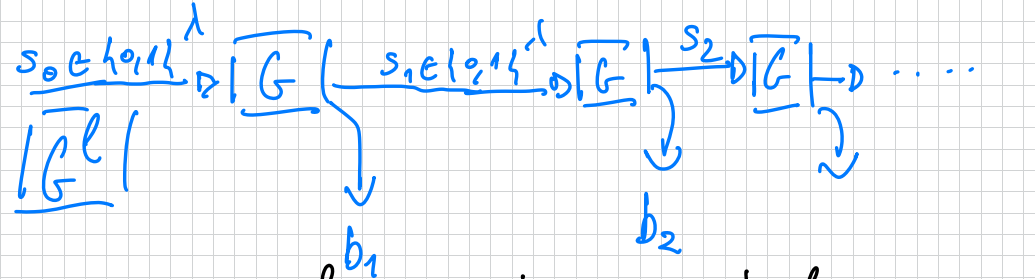 s₀ ∈ {0,1}^λ G s₁ ∈ {0,1}^λ G s₂ G ......
G^l
b₁ b₂